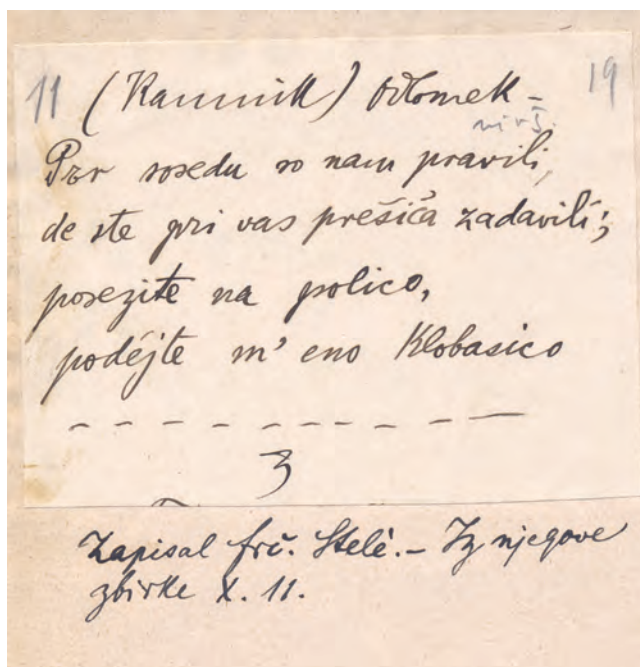 11 (Kamnik) Odlomek – 19
Pər sosedu so nam pravili,
de ste pri vas prešiča zadavili;
posezite na polico,
podéjte m' eno klobasico
Zapisal frč. Stelè. – Iz njegove
zbirke X. 11.